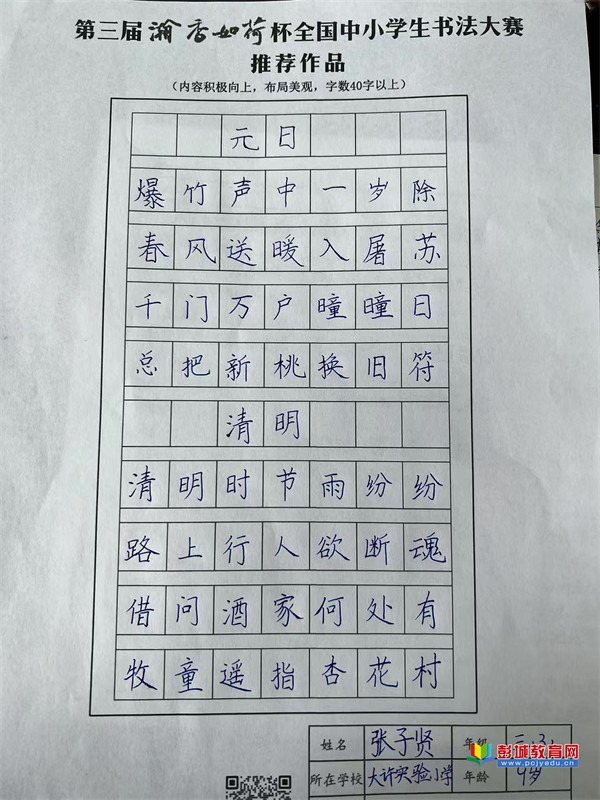 第三届瀚香如荷杯全国中小学生书法大赛
推荐作品
（内容积极向上，布局美观，字数40字以上）
元日
爆竹声中一岁除
春风送暖入屠苏
千门万户曈曈日
总把新桃换旧符
清明
清明时节雨纷纷
路上行人欲断魂
借问酒家何处有
牧童遥指杏花村
姓名 张子贤 年级
所在学校 大许实验小学 年龄 9岁
彭城教育网
www.pcjyedu.cn